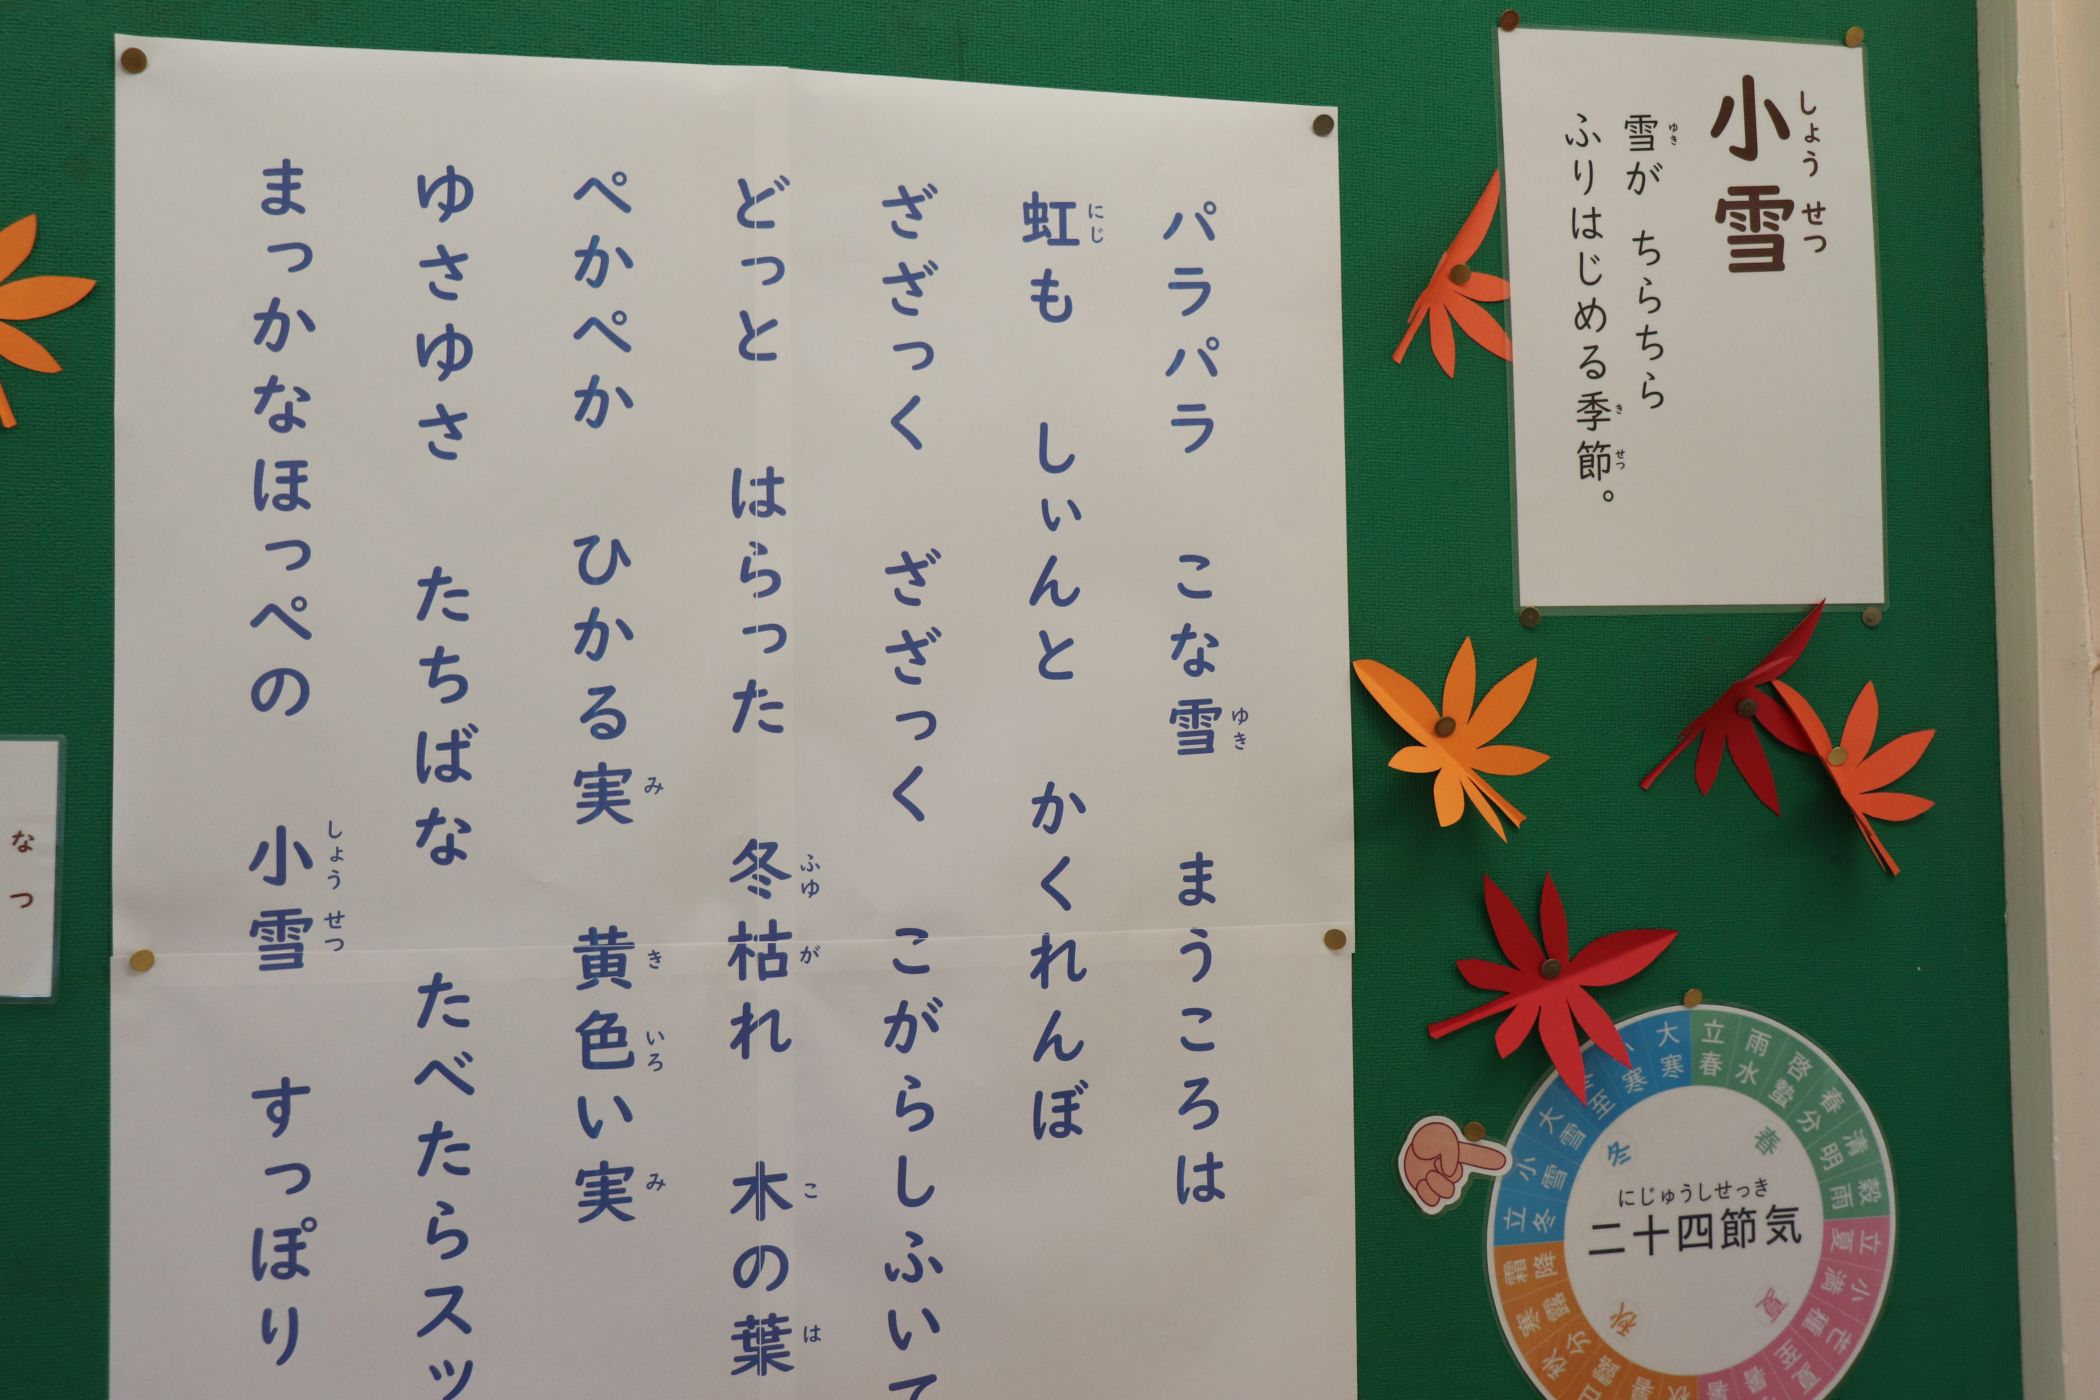 小雪
しょうせつ
雪が ちらちら
ゆき
ふりはじめる季節。
きせつ
パラパラ こな雪 まうころは
ゆき
虹も しぃんと かくれんぼ
にじ
ざざざっく ざざざっく こがらしふいて
どっと はらった 冬枯れ 木の葉
ふゆが こ は
ぺかぺか ひかる実 黄色い実
み きいろ み
ゆさゆさ たちばな たべたらスッ
まっかなほっぺの 小雪 すっぽり
しょうせつ
なつ
にじゅうしせっき
二十四節気
春
夏
秋
冬
立春
雨水
啓蟄
春分
清明
穀雨
立夏
小満
芒種
夏至
小暑
秋分
寒露
霜降
立冬
小雪
大雪
至
寒
大寒